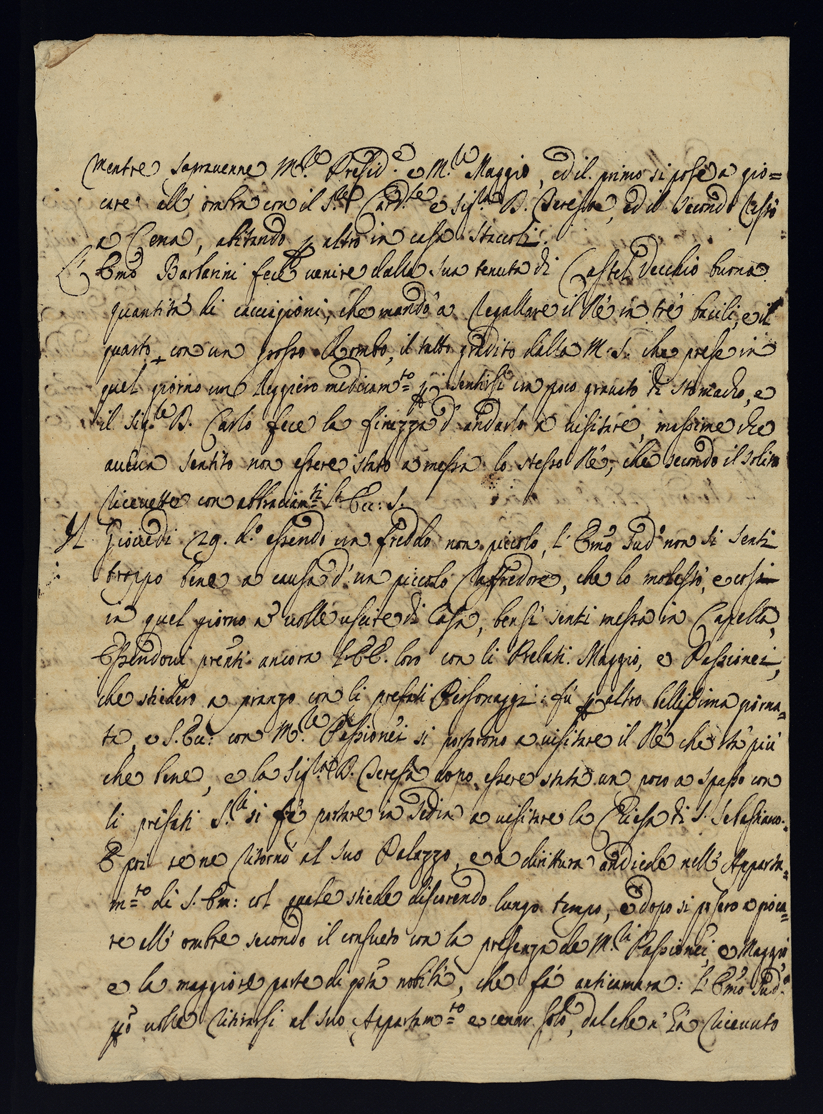 mentre sopravenne M.re Presid.e e M.re Maggio, ed il primo si pose a gio=
care all' ombra con il S.r Card.le e sig.ra D. Teresa, ed il secondo restò
a Cena, abitando p altro in casa Staccoli.
L'Emo Barbarini fece venire dalla sua tenuta di Castel Vecchio buona
quantità di cacciagioni, che mandò a regallare il Rè in trè bacili, e il
quarto con un grosso Rombo, il tutto gradito dalla M. S. che prese in
quel giorno un leggiero medicam.to p sentirsi un poco gravato di stomacho, e
il sig.re D. Carlo fece la finezza d' andarlo a visitare, massime che
aveva sentito non essere stato a messa lo stesso Rè, che secondo il solito
ricevette con abbraciam.ti S. Ecc: S.
Il Giovedi 29. d.o essendo un freddo non piccolo, l' Emo sud.o non si senti
troppo bene a causa d' un piccolo raffredore, che lo molestò, e cosi
in quel giorno n' volle uscire di Casa, bensì senti messa in Capella,
Essendovi pnti ancora L'EE. loro con li Prelati Maggio, e Passionei,
che stiedero a pranzo con li prefati Personaggi: fù p altro bellissima giorna=
ta, e S. Ecc: con M.re Passionei si portorono a visitare il Rè che stà più
che bene, e la Sig.ra D. Teresa dopo essere stata un poco a spasso con
li prefati S.ri si fè portare in sedia a visitare la Chiesa di S. Sebastiano.
E poi se ne ritornò al suo Palazzo, e a dirittura andiede nell' Apparta=
m.to di S. Em: col quale stiede discorendo lungo tempo, e dopo si posero a gioca=
re all' ombre secondo il consueto con la presenza de M.ri Passionei, e Maggio
e la maggiore parte di qsta nobiltà, che fà anticamera: l' Emo sud.o
pò volle ritirarsi al suo Appartam.to e cenar solo, dal che n' hà ricevuto